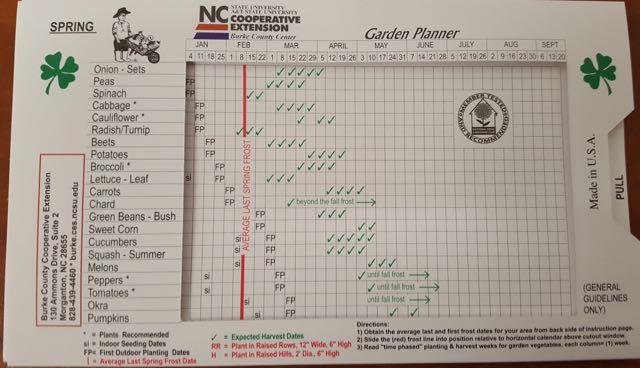 SPRING
NC STATE UNIVERSITY
A&T STATE UNIVERSITY
COOPERATIVE
EXTENSION
Burke County Center
Garden Planner
JAN FEB MAR APRIL MAY JUNE JULY AUG SEPT
4 11 18 25 1 8 15 22 1 8 15 22 29 5 12 19 26 3 10 17 24 31 7 14 21 28 5 12 19 26 2 9 16 23 30 6 13 20
Onion - Sets
Peas FP
Spinach FP
Cabbage * FP
Cauliflower * FP
Radish/Turnip FP
Beets FP
Potatoes FP
Broccoli * FP
Lettuce - Leaf si FP
Carrots FP
Chard FP beyond the fall frost
Green Beans - Bush FP
Sweet Corn FP
Cucumbers si FP
Squash - Summer si FP
Melons si FP
Peppers * si FP until fall frost
Tomatoes * si FP until fall frost
Okra si FP until fall frost
Pumpkins si FP
AVERAGE LAST SPRING FROST
MEMBER TESTED
AND RECOMMENDED
Burke County Cooperative Extension
130 Ammons Drive, Suite 2
Morganton, NC 28655
828-439-4460 * burke.ces.ncsu.edu
Made in U.S.A.
PULL
(GENERAL
GUIDELINES
ONLY)
* = Plants Recommended
si = Indoor Seeding Dates
FP= First Outdoor Planting Dates
| = Average Last Spring Frost Date
✓ = Expected Harvest Dates
RR = Plant in Raised Rows, 12" Wide, 6" High
H = Plant in Raised Hills, 2' Dia., 6" High
Directions:
1) Obtain the average last and first frost dates for your area from back side of instruction page.
2) Slide the (red) frost line into position relative to horizontal calendar above cutout window.
3) Read "time phased" planting & harvest weeks for garden vegetables, each column= (1) week.